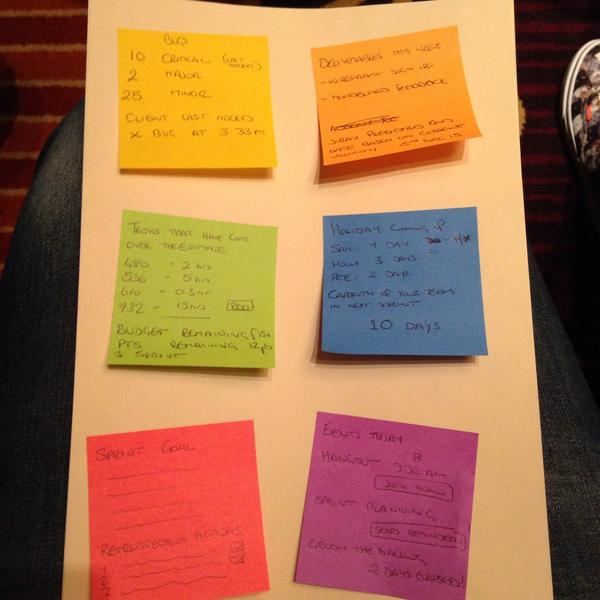 BUGS
10 CRITICAL (LAST ADDED)
2 MAJOR
25 MINOR
CLIENT LAST ADDED
X BUG AT 3.33PM
DELIVERABLES THIS WEEK
- WIREFRAME SIGN OFF
- MOODBOARD FEEDBACK
JIRA'S PREDICTED END
DATE BASED ON CURRENT
VELOCITY 15TH DEC 15
TASKS THAT HAVE GONE
OVER THE ESTIMATE
480 - 2 hrs
536 - 5 hrs
610 - 0.5 hr
932 - 15 hrs RED
BUDGET REMAINING £15k
PTS REMAINING 12 pts
1 SPRINT
HOLIDAY COMING UP
SAM: 1 DAY
HOLLY 3 DAYS
PETE: 2 DAYS
CAPACITY OF YOUR TEAM
IN NEXT SPRINT
10 DAYS
SPRINT GOAL
RETROSPECTIVE ACTIONS
EVENTS TODAY
HANGOUT 9:30 AM
JOIN NOW
SPRINT PLANNING
SEND REMINDER
GROOM THE BACKLOG
2 DAYS ELAPSED!